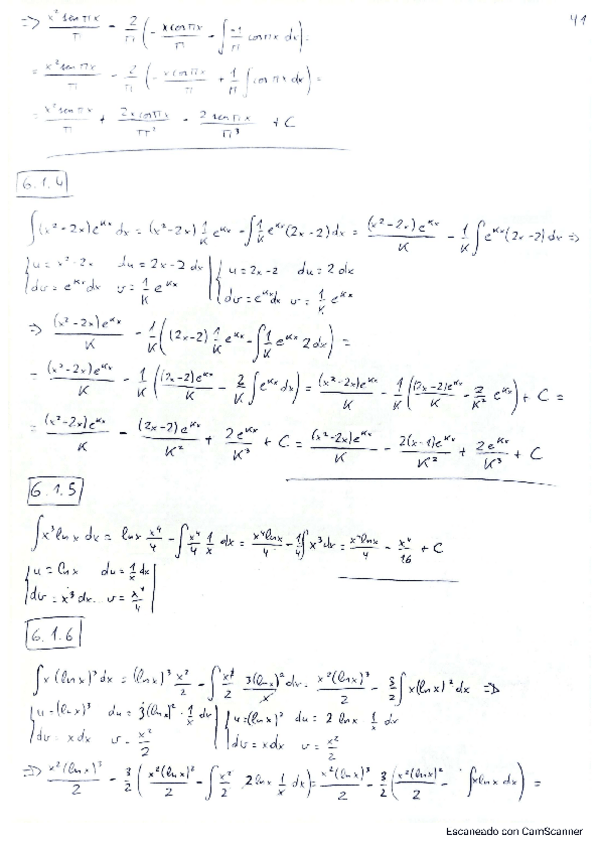 41
=> x² sen πx / π - 2/π ( - x cos πx / π - ∫ -1/π cos πx dx ) =
= x² sen πx / π - 2/π ( - x cos πx / π + 1/π ∫ cos πx dx ) =
= x² sen πx / π + 2x cos πx / π² - 2 sen πx / π³ + C
6.1.4
∫(x²-2x)e^{Kx} dx = (x²-2x) 1/K e^{Kx} - ∫ 1/K e^{Kx} (2x-2) dx = (x²-2x)e^{Kx} / K - 1/K ∫ e^{Kx} (2x-2) dx =>
{ u = x²-2x du = 2x-2 dx | { u = 2x-2 du = 2 dx
{ dv = e^{Kx} dx v = 1/K e^{Kx} | { dv = e^{Kx} dx v = 1/K e^{Kx}
=> (x²-2x)e^{Kx} / K - 1/K ( (2x-2) 1/K e^{Kx} - ∫ 1/K e^{Kx} 2 dx ) =
= (x²-2x)e^{Kx} / K - 1/K ( (2x-2)e^{Kx} / K - 2/K ∫ e^{Kx} dx ) = (x²-2x)e^{Kx} / K - 1/K ( (2x-2)e^{Kx} / K - 2/K² e^{Kx} ) + C =
= (x²-2x)e^{Kx} / K - (2x-2)e^{Kx} / K² + 2e^{Kx} / K³ + C = (x²-2x)e^{Kx} / K - 2(x-1)e^{Kx} / K² + 2e^{Kx} / K³ + C
6.1.5
∫x³ ln x dx = ln x x⁴/4 - ∫ x⁴/4 1/x dx = x⁴ ln x / 4 - 1/4 ∫ x³ dx = x⁴ ln x / 4 - x⁴/16 + C
{ u = ln x du = 1/x dx |
{ dv = x³ dx v = x⁴/4 |
6.1.6
∫x(ln x)³ dx = (ln x)³ x²/2 - ∫ x²/2 3(ln x)²/x dx = x²(ln x)³ / 2 - 3/2 ∫ x(ln x)² dx =>
{ u = (ln x)³ du = 3(ln x)² · 1/x dx | { u = (ln x)² du = 2 ln x 1/x dx
{ dv = x dx v = x²/2 | { dv = x dx v = x²/2
=> x²(ln x)³ / 2 - 3/2 ( x²(ln x)² / 2 - ∫ x²/2 2 ln x 1/x dx ) = x²(ln x)³ / 2 - 3/2 ( x²(ln x)² / 2 - ∫ x ln x dx ) =
Escaneado con CamScanner